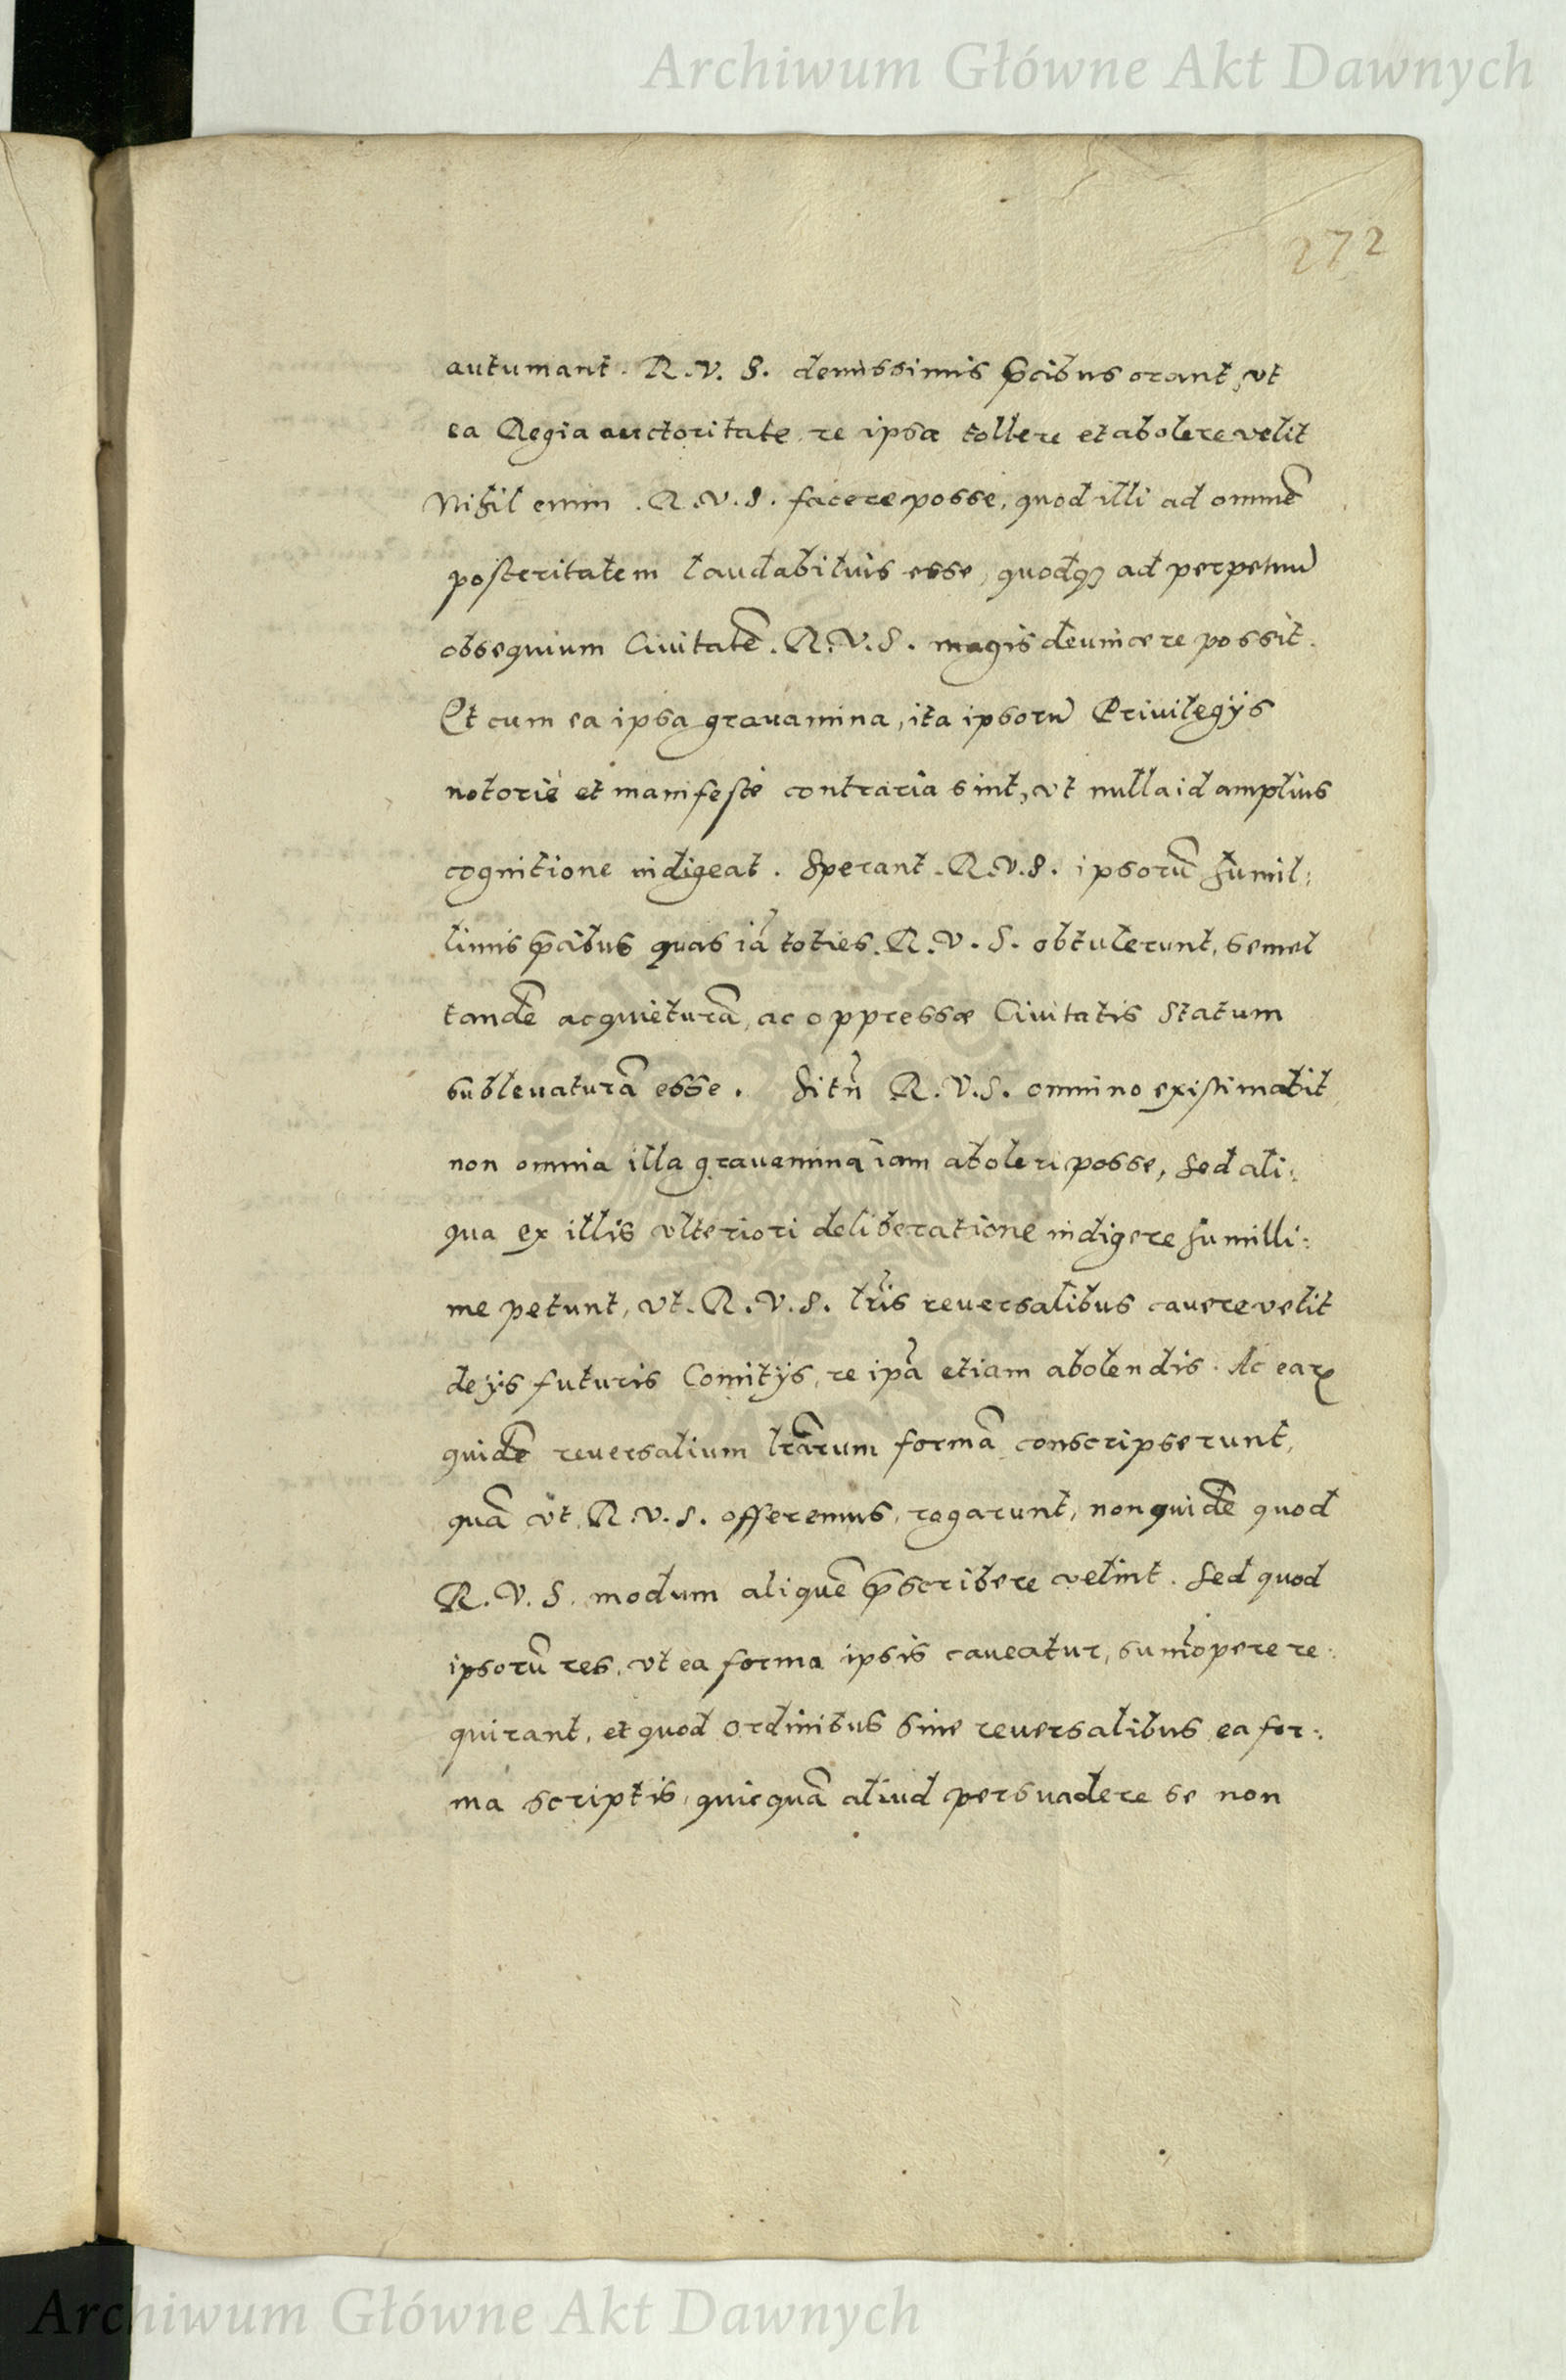 Archiwum Główne Akt Dawnych
272
autumant. R. V. S. demissimis p̄cibus orant, vt
ea Regia auctoritate re ipsa tollere et abolere velit
Nihil enim. R. V. S. facere posse, quod illi ad omnē
posteritatem laudabilius esse, quodqȝ ad perpetuū
obsequium Ciuitatē. R. V. S. magis deuincere possit.
Et cum ea ipsa grauamina, ita ipsorū Priuilegijs
notorie et manifeste contraria sint, vt nulla id amplius
cognitione indigeat. Sperant. R. V. S. ipsorū humil:
limis p̄cibus quas iā toties. R. V. S. obtulerunt, semel
tandē acquieturā, ac oppressæ Ciuitatis Statum
subleuaturā esse. Sitñ R. V. S. omnino existimabit
non omnia illa grauamina iam aboleri posse, sed ali:
qua ex illis vlteriori deliberatione indigere humilli:
me petunt, vt. R. V. S. lr̄is reuersalibus cauere velit
de ijs futuris Comitijs, re ipā etiam abolendis. Ac earꝝ
quidē reuersalium lr̄arum formā conscripserunt,
quā vt R. V. S. offeremus, rogarunt, non quidē quod
R. V. S. modum aliquē p̄scribere velint. Sed quod
ipsorū res, vt ea forma ipsis caveatur, sum̄opere re:
quirant, et quod Ordinibus sine reuersalibus ea for:
ma scriptis, quicquā aliud persuadere se non
Archiwum Główne Akt Dawnych